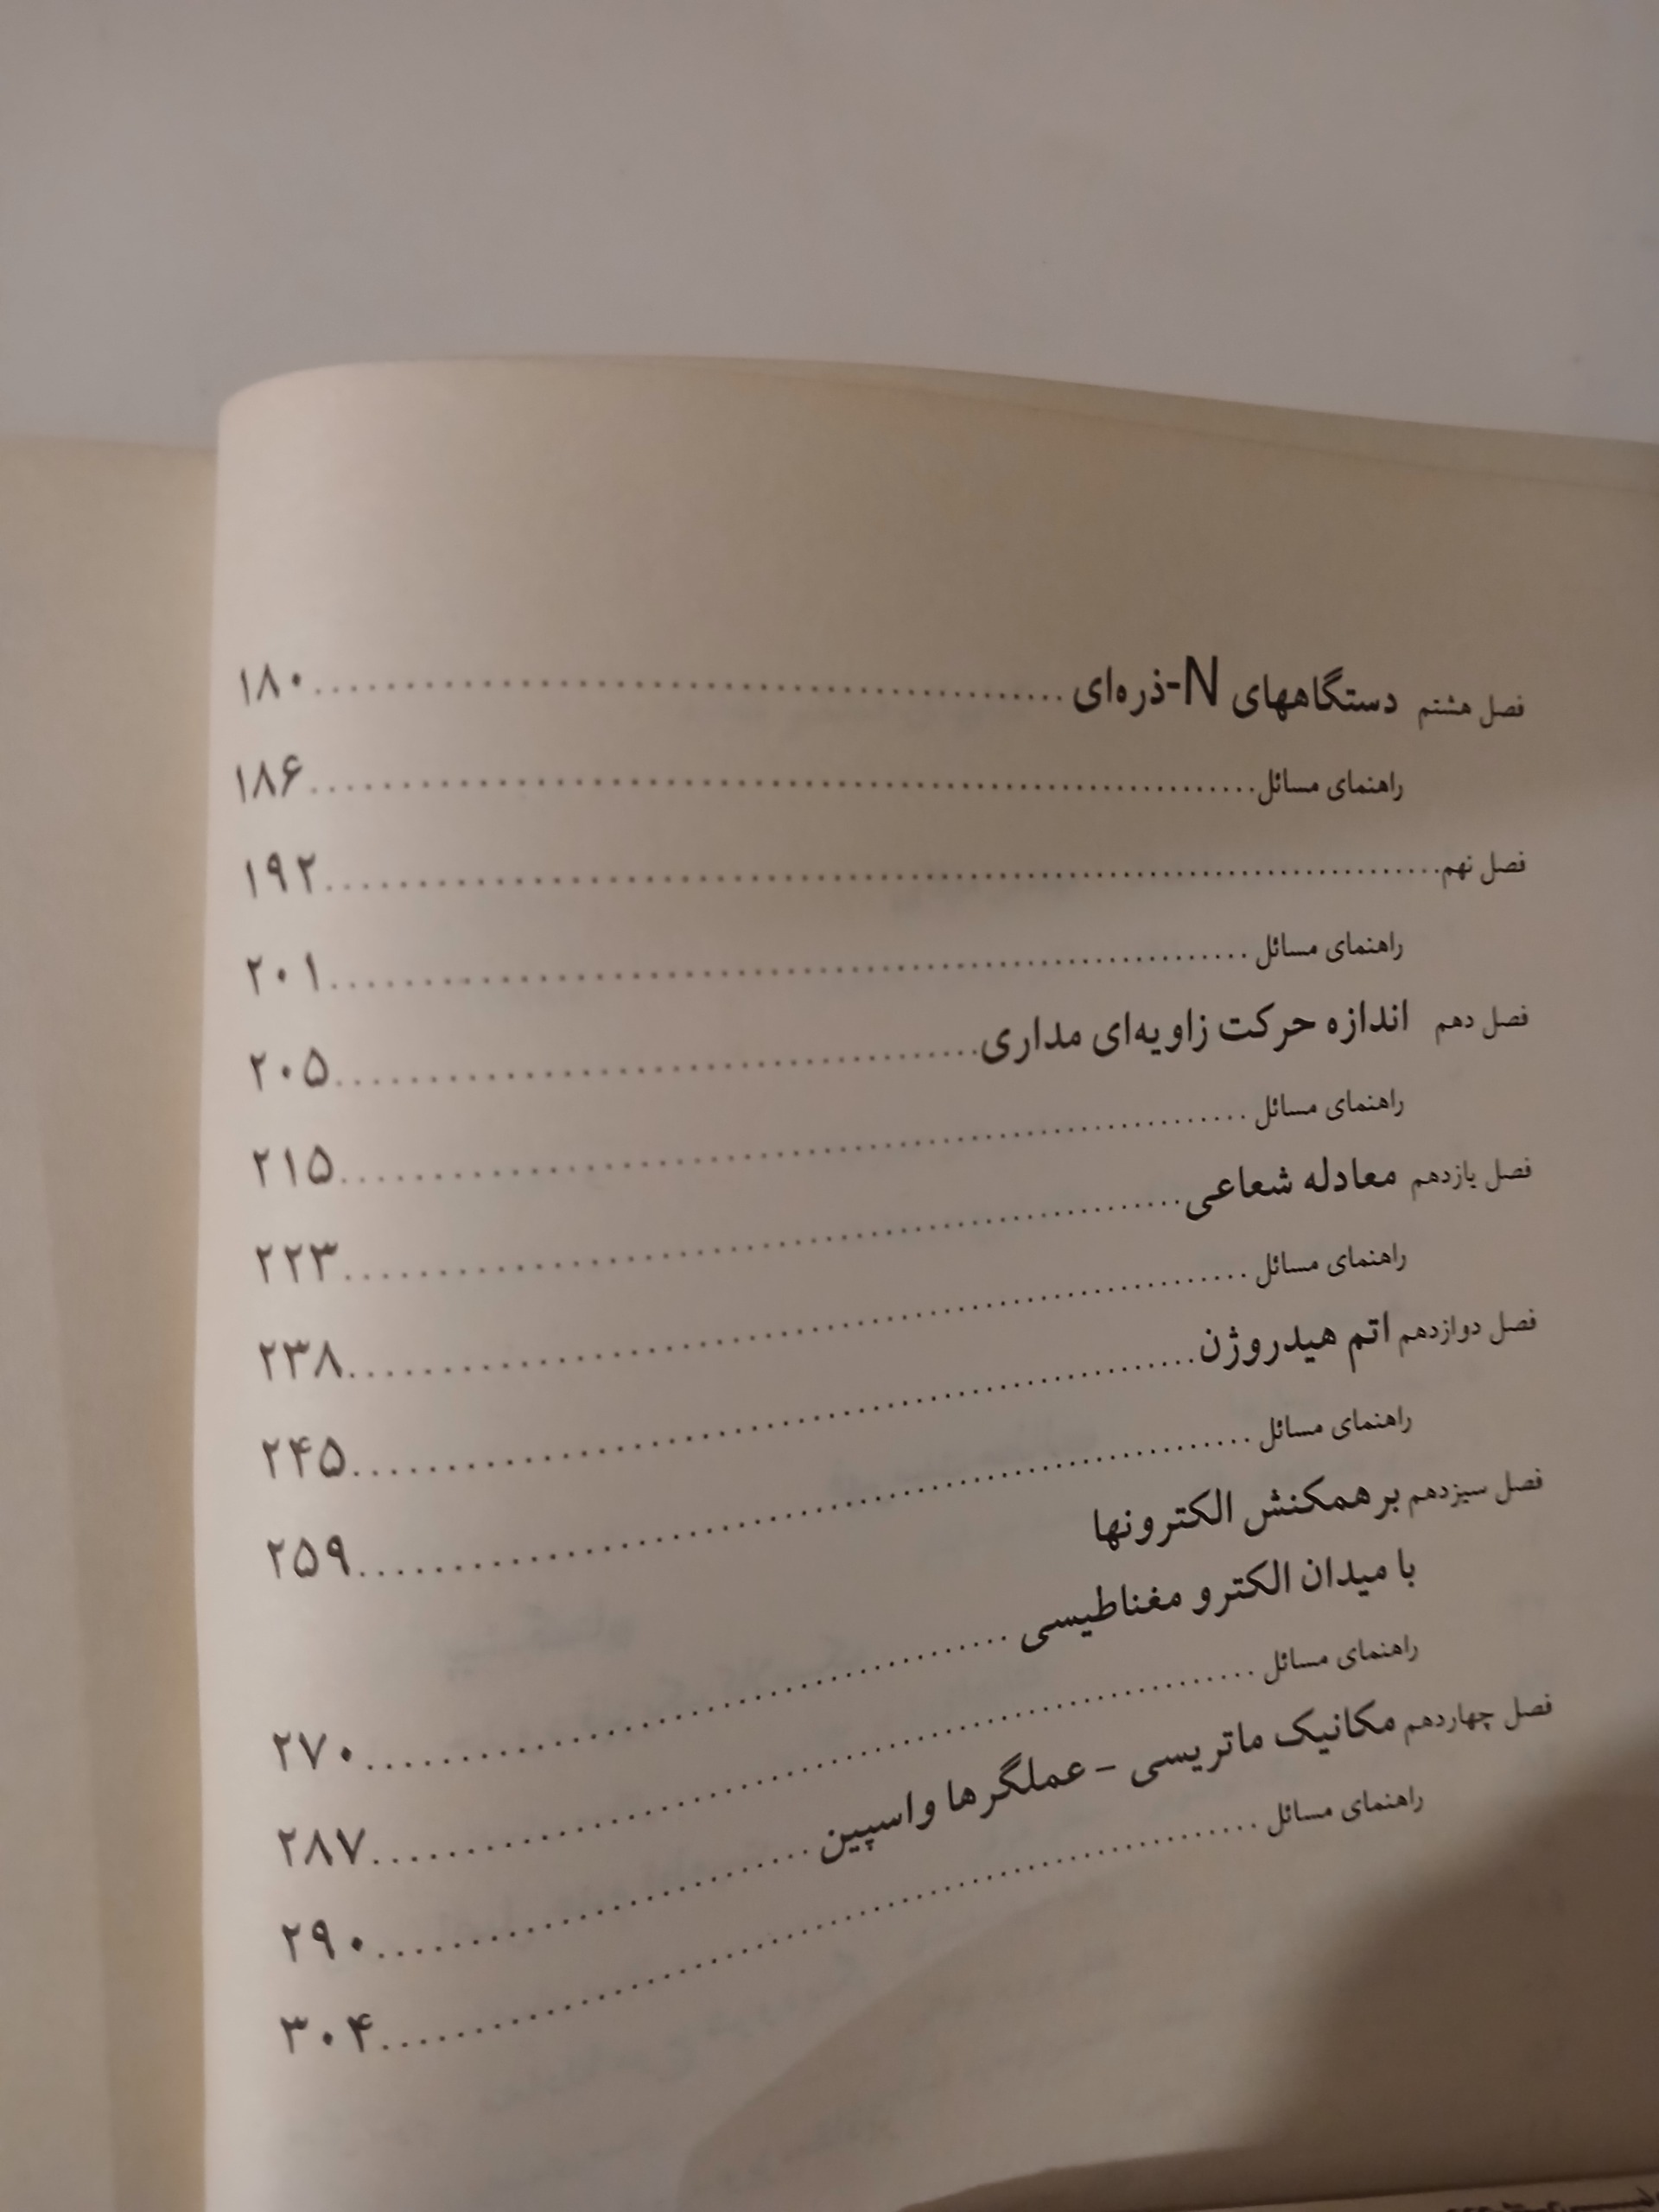 فصل هشتم دستگاههای N-ذره‌ای ..... ۱۸۰
راهنمای مسائل ..... ۱۸۶
فصل نهم ..... ۱۹۲
راهنمای مسائل ..... ۲۰۱
فصل دهم اندازه حرکت زاویه‌ای مداری ..... ۲۰۵
راهنمای مسائل ..... ۲۱۵
فصل یازدهم معادله شعاعی ..... ۲۲۳
راهنمای مسائل ..... ۲۳۸
فصل دوازدهم اتم هیدروژن ..... ۲۴۵
راهنمای مسائل ..... ۲۵۹
فصل سیزدهم بر همکنش الکترونها
با میدان الکترو مغناطیسی ..... ۲۷۰
راهنمای مسائل ..... ۲۸۷
فصل چهاردهم مکانیک ماتریسی - عملگرها و اسپین ..... ۲۹۰
راهنمای مسائل ..... ۳۰۴